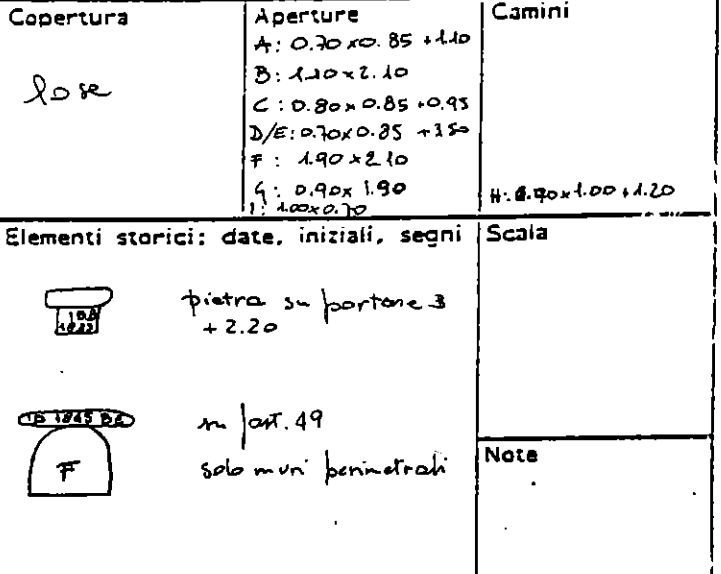 Copertura
lose
Aperture
A: 0.70 x 0.85 +1.10
B: 1.10 x 2.10
C: 0.80 x 0.85 +0.95
D/E: 0.70 x 0.85 +1.50
F: 1.90 x 2.10
G: 0.90 x 1.90
I: 1.00 x 0.70
Camini
H: 0.90 x 1.00 +1.20
Elementi storici: date, iniziali, segni
pietra su portone 3
+2.20
1845
part. 49
F
solo muri perimetrali
Scala
Note